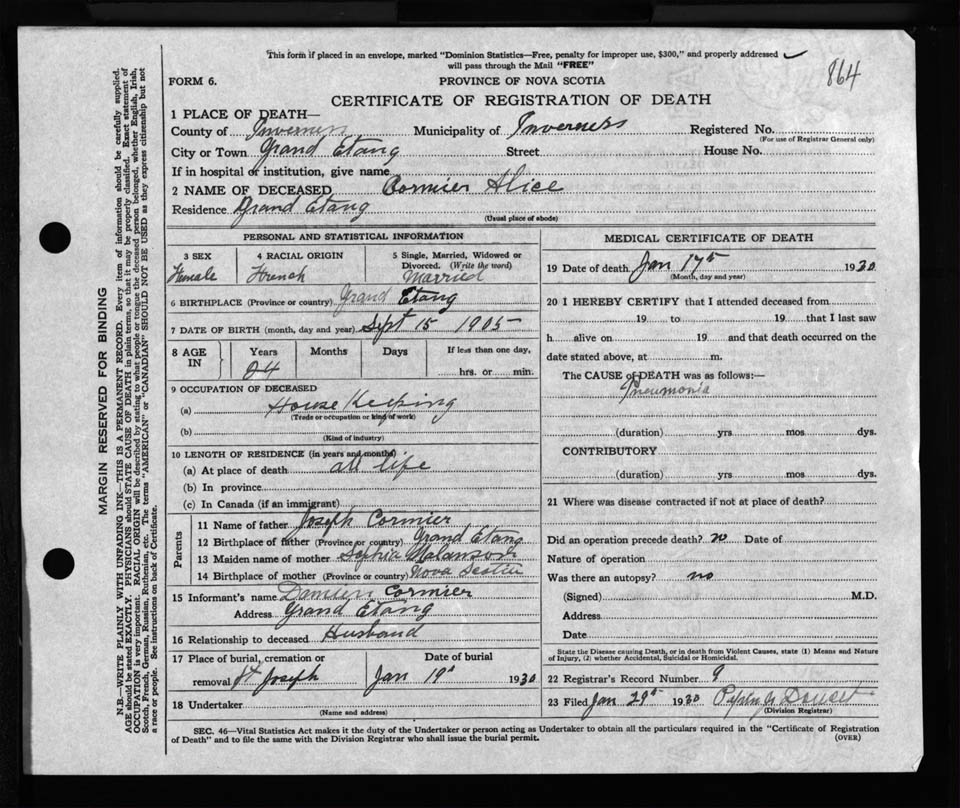 This form if placed in an envelope, marked "Dominion Statistics—Free, penalty for improper use, $300," and properly addressed
will pass through the Mail "FREE"
864
FORM 6. PROVINCE OF NOVA SCOTIA
CERTIFICATE OF REGISTRATION OF DEATH
1 PLACE OF DEATH—
County of Inverness Municipality of Inverness Registered No.
(For use of Registrar General only)
City or Town Grand Etang Street House No.
If in hospital or institution, give name
2 NAME OF DECEASED Cormier Alice
Residence Grand Etang
(Usual place of abode)
PERSONAL AND STATISTICAL INFORMATION
3 SEX 4 RACIAL ORIGIN 5 Single, Married, Widowed or
Divorced. (Write the word)
Female French Married
6 BIRTHPLACE (Province or country) Grand Etang
7 DATE OF BIRTH (month, day and year) Sept 15 1905
8 AGE IN Years Months Days If less than one day,
24 hrs. or min.
9 OCCUPATION OF DECEASED
(a) House Keeping
(Trade or occupation or kind of work)
(b)
(Kind of industry)
10 LENGTH OF RESIDENCE (in years and months)
(a) At place of death all life
(b) In province
(c) In Canada (if an immigrant)
Parents
11 Name of father Joseph Cormier
12 Birthplace of father (Province or country) Grand Etang
13 Maiden name of mother Sophia Malanson
14 Birthplace of mother (Province or country) Nova Scotia
15 Informant's name Damien Cormier
Address Grand Etang
16 Relationship to deceased Husband
17 Place of burial, cremation or Date of burial
removal St Joseph Jan 19 1930
18 Undertaker
(Name and address)
MEDICAL CERTIFICATE OF DEATH
19 Date of death Jan 17 1930
(Month, day and year)
20 I HEREBY CERTIFY that I attended deceased from
19 to 19 that I last saw
h alive on 19 and that death occurred on the
date stated above, at m.
The CAUSE of DEATH was as follows:—
Pneumonia
(duration) yrs mos dys.
CONTRIBUTORY
(duration) yrs mos dys.
21 Where was disease contracted if not at place of death?
Did an operation precede death? no Date of
Nature of operation
Was there an autopsy? no
(Signed) M.D.
Address
Date
State the Disease causing Death, or in death from Violent Causes, state (1) Means and Nature
of Injury, (2) whether Accidental, Suicidal or Homicidal.
22 Registrar's Record Number 9
23 Filed Jan 29 1930
(Division Registrar)
SEC. 46—Vital Statistics Act makes it the duty of the Undertaker or person acting as Undertaker to obtain all the particulars required in the "Certificate of Registration
of Death" and to file the same with the Division Registrar who shall issue the burial permit. (OVER)
MARGIN RESERVED FOR BINDING
N.B.—WRITE PLAINLY WITH UNFADING INK—THIS IS A PERMANENT RECORD. Every item of information should be carefully supplied.
AGE should be stated EXACTLY. PHYSICIANS should STATE CAUSE OF DEATH in plain terms, so that it may be properly classified. Exact statement of
OCCUPATION is very important. RACIAL ORIGIN will be described by stating to what people or tongue the deceased person belonged, whether English, Irish,
Scotch, French, German, Russian, Ruthenian, etc. The terms "AMERICAN" or "CANADIAN" SHOULD NOT BE USED as they express citizenship but not
a race or people. See instructions on back of Certificate.